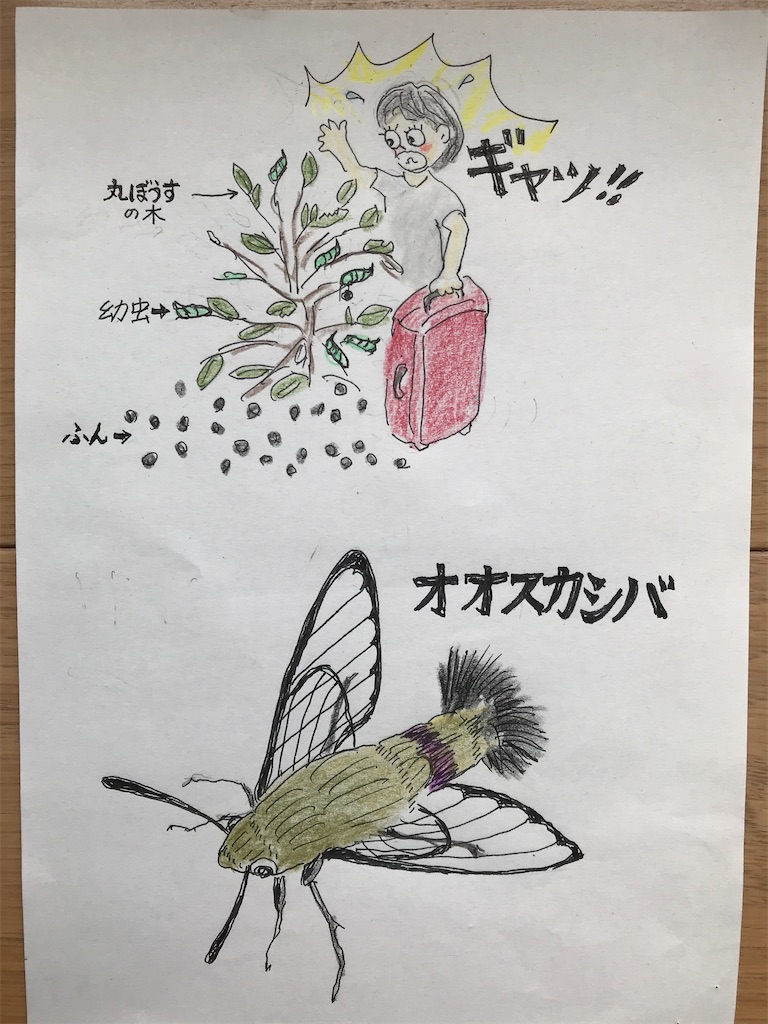 ギャッ!!
丸ぼうず
の木
幼虫→
ふん→
オオスカシバ